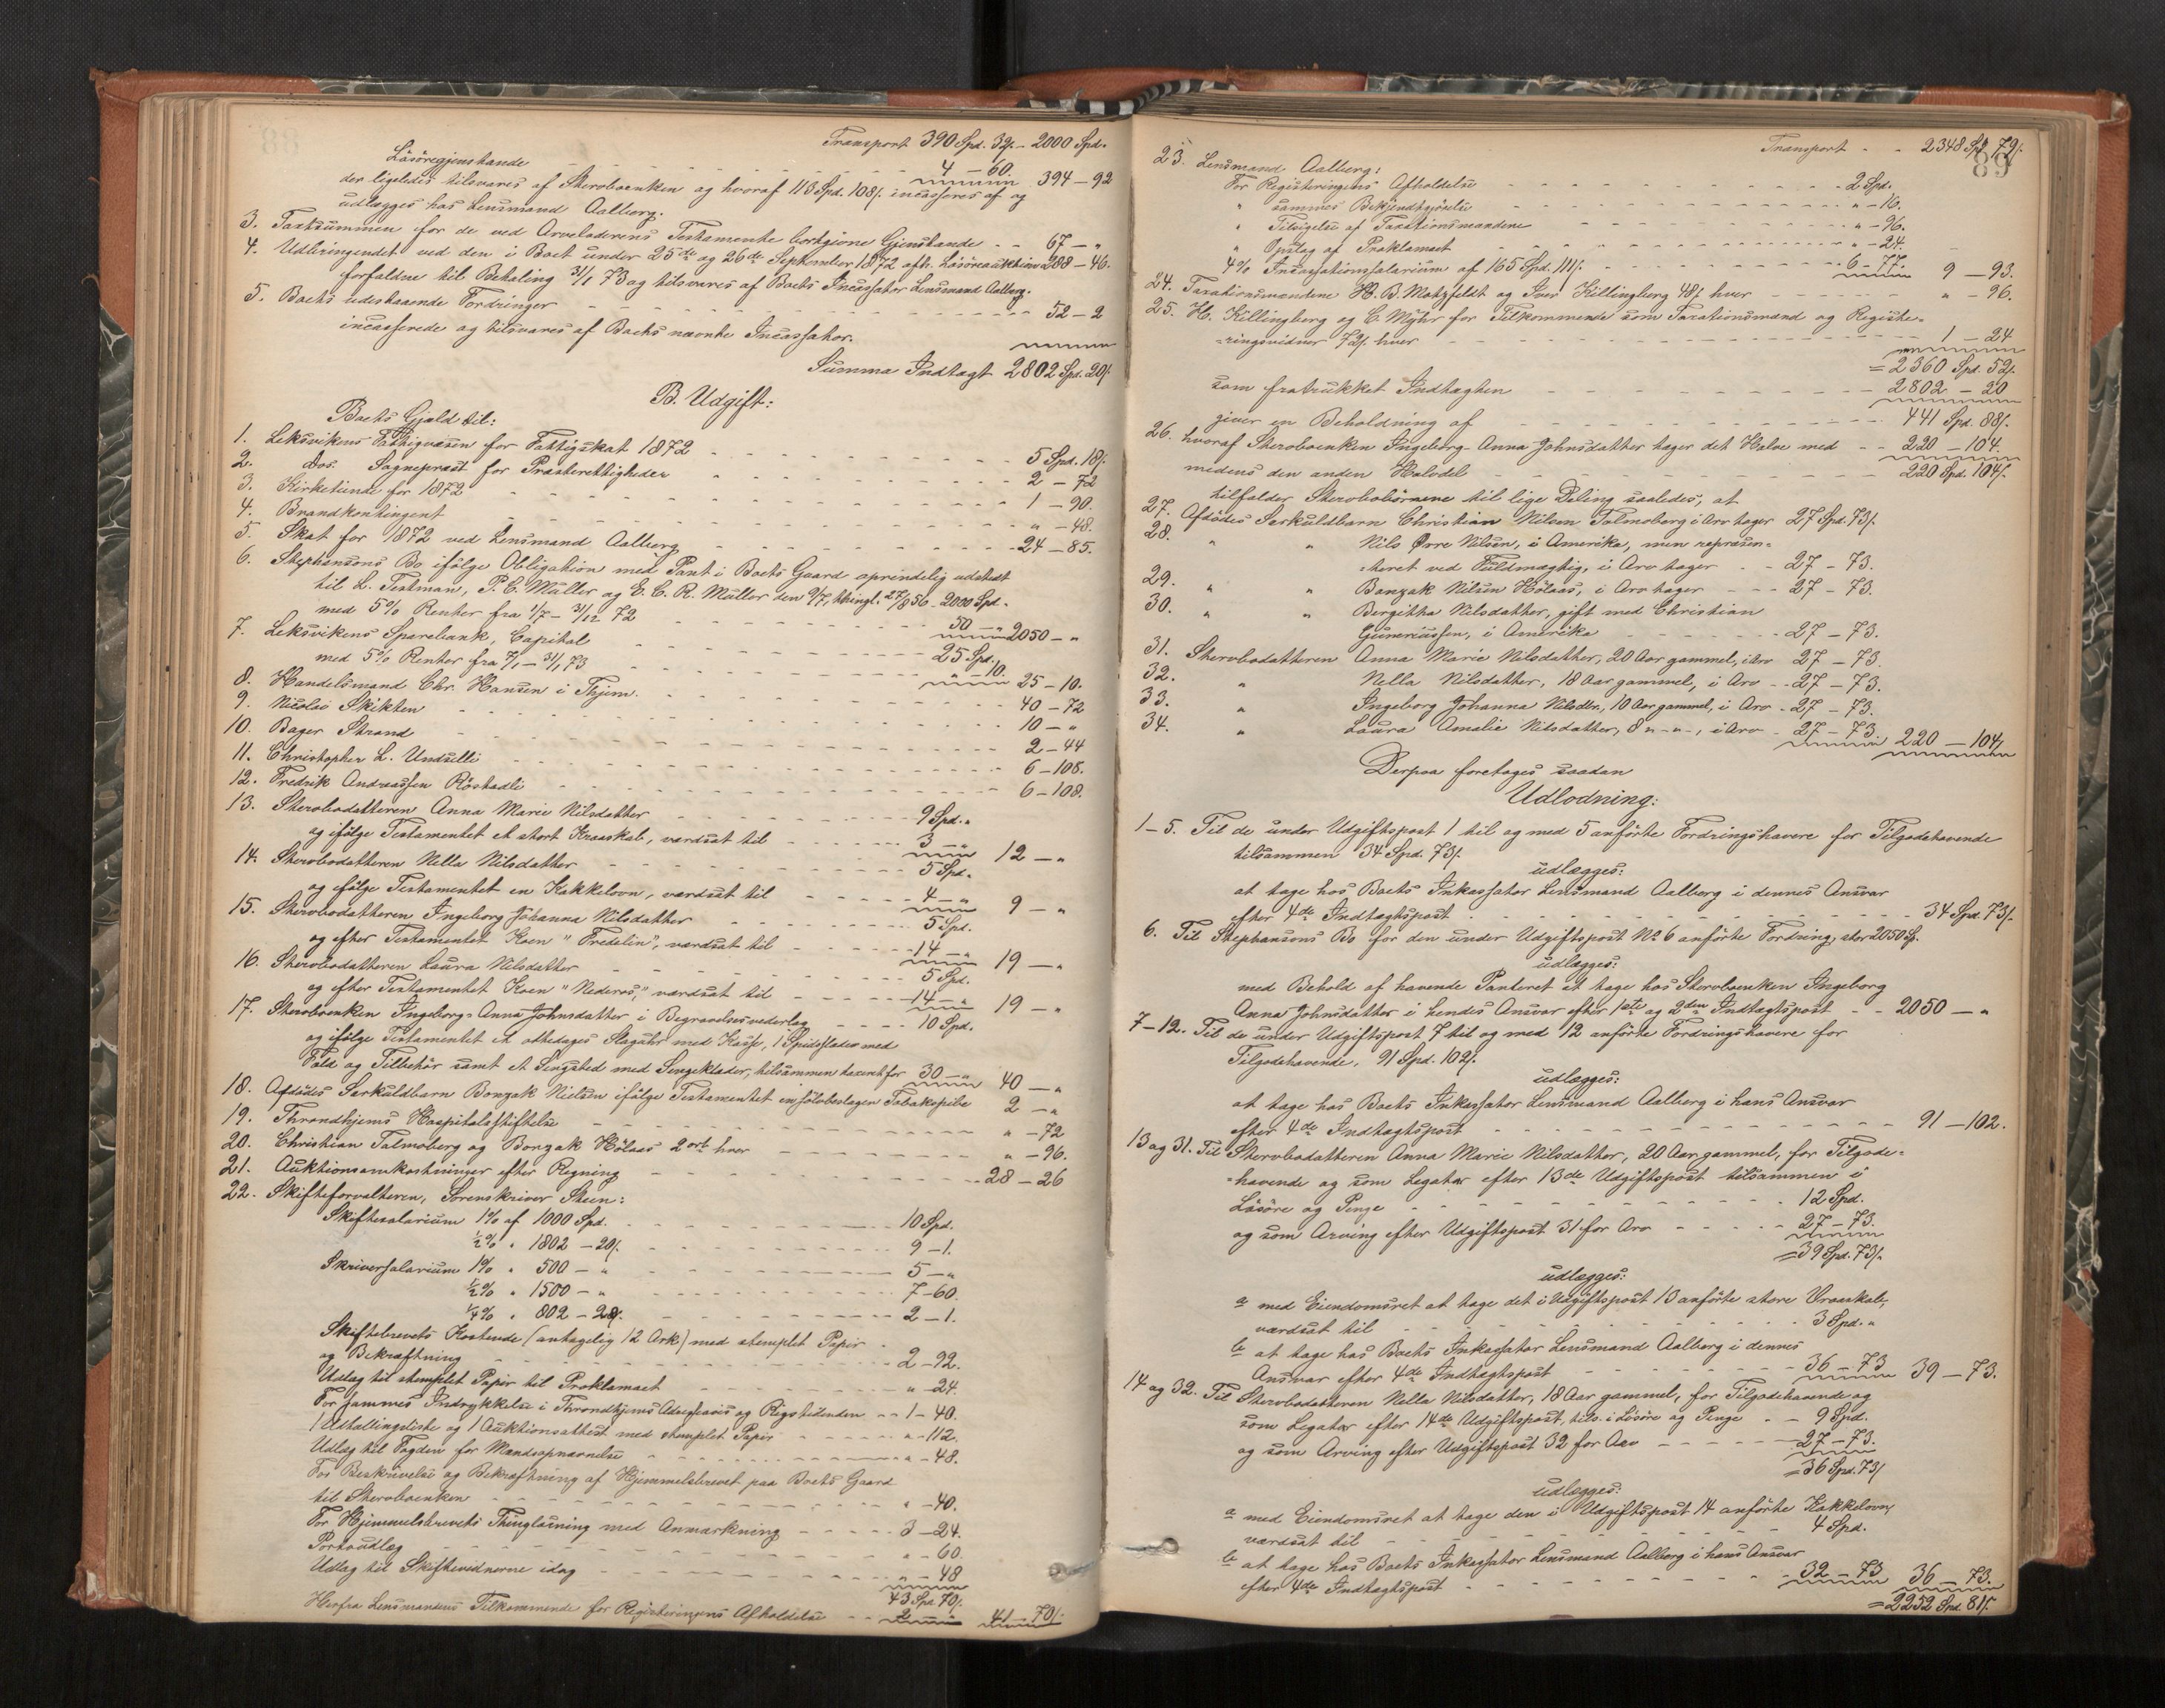 Transport 390 Spd. 32/ - 2000 Spd.
Lösöregjenstande - - - 4 - 60. 394 - 92
der ligeledes tilsvares af Stervboenken og hvoraf 118 Spd. 108/. incasseres af og
udlægges hos Lensmand Aalberg.
3. Taxtsummen for de ved Arveladerens Testamente bortgivne Gjenstande - - 67 - "
4. Udbringendet ved den i Boet under 25de og 26de September 1872 afh. Lösöreauktion 288 - 46.
forfalden til Betaling 31/1 73 og tilsvares af Boets Incassator Lensmand Aalberg.
5. Boets udestaaende Fordringer - - - 52 - 2
incasserede og tilsvares af Boets nævnte Incassator.
Summa Indtægt 2802 Spd. 20/.
B. Udgift:
Boets Gjæld til:
1. Leksvikens Fattigvæsen for Fattigskat 1872 - - - 5 Spd. 18/.
2. dos. Sogneprest for Præsterettigheder - - - 2 - 72
3. Kirketiende for 1872 - - - 1 - 90.
4. Brandkontingent - - - " - 48.
5. Skat for 1872 ved Lensmand Aalberg - - - 24 - 85.
6. Stephansons Bo ifölge Obligation med Pant i Boets Gaard oprindelig udstedt
til L. Testman, P. C. Müller og E. C. R. Müller den 9/7, thingl. 27/8 56 - 2000 Spd. "
med 5% Renter fra 1/7 - 31/12 72 - - - 50 - " 2050 - "
7. Leksvikens Sparebank, Capital - - - 25 Spd.
med 5% Renter fra 7/1 - 31/1 73 - - - " - 10. 25 - 10.
8. Handelsmand Chr. Hansen i Thjem. - - - 40 - 72
9. Nicolai Skikten - - - 10 - "
10. Bager Strand - - - 2 - 44
11. Christopher L. Undselli - - - 6 - 108.
12. Fredrik Andreassen Röstadli - - - 6 - 108.
13. Stervbodatteren Anna Marie Nilsdatter - - - 9 Spd. "
og ifölge Testamentet et stort Kraaskab, værdsat til - - - 3 - " 12 - "
14. Stervbodatteren Nella Nilsdatter - - - 5 Spd.
og ifölge Testamentet en Kakkelovn, værdsat til - - - 4 - " 9 - "
15. Stervbodatteren Ingeborg Johanna Nilsdatter - - - 5 Spd.
og efter Testamentet Koen "Fredelin", værdsat til - - - 14 - " 19 - "
16. Stervbodatteren Laura Nilsdatter - - - 5 Spd.
og efter Testamentet Koen "Nederos," værdsat til - - - 14 - " 19 - "
17. Stervboenken Ingeborg-Anna Johnsdatter i Begravelsesvederlag - - - 10 Spd.
og ifölge Testamentet et ottedages Slaguhr med Kasse, 1 Spidsslæde med
Fæld og Tilbehör samt et Sengsted med Sengeklæder, tilsammen taxeret for 30 - " 40 - "
18. Afdödes Særkuldbarn Bongak Nielsen ifölge Testamentet en sölvbeslagen Tobakspibe 2 - "
19. Throndhjems Hospitalsstiftelse - - - " - 72
20. Christian Talmoberg og Bongak Hölaas 2 ort hver - - - " - 96.
21. Auktionsomkostninger efter Regning - - - 28 - 26
22. Skifteforvalteren, Sorenskriver Steen:
Skiftesalarium 1% af 1000 Spd. - - - 10 Spd.
1/2% " 1802 - 20/. - - - 9 - 1.
Skriversalarium 1% " 500 - " - - - 5 - "
1/2% " 1500 - " - - - 7 - 60.
1/4% " 802 - 20/. - - - 2 - 1.
Skiftebrevets Kostende (antagelig 12 Ark) med stemplet Papir
og Bekræftning - - - 2 - 92.
Udlæg til stemplet Papir til Proklamaet - - - " - 24.
For sammes Indrykkelse i Throndhjems Adresseavis og Rigstidenden - - 1 - 40.
1 Udtallingsliste og 1 Auktionsattest med stemplet Papir - - - " - 112.
Udlæg til Fogden for Mændsopnævnelse - - - " - 48.
For Beskrivelse og Bekræftning af Hjemmelsbrevet paa Boets Gaard
til Stervboenken - - - " - 40.
For Hjemmelsbrevets Thinglæsning med Anmærkning - - - 3 - 24.
Portoudlæg - - - " - 60.
Udlæg til Skiftevidnerne idag - - - " - 48
43 Spd. 70/.
Herfra Lensmandens Tilkommende for Registeringens Afholdelse - - 2 - " 41 - 70/.
Transport - - 2348 Spd. 79/.
89
23. Lensmand Aalberg:
For Registeringens Afholdelse - - - 2 Spd.
" sammes Bekjendtgjörelse - - - " - 16.
" Tilsigelse af Taxationsmændene - - - " - 96.
" Opslag af Proklamaet - - - " - 24.
4% Incassationssalarium af 165 Spd. 111/. - - - 6 - 77. 9 - 93.
24. Taxationsmændene H. B. Motzfeldt og Iver Killingberg 48/. hver - - - " - 96.
25. H. Killingberg og C. Myhr for Tilkommende som Taxationsmænd og Registe=
=ringsvidner 72/. hver - - - 1 - 24
= 2360 Spd. 52/.
som fratrukket Indtægten - - - 2802 - 20
giver en Beholdning af - - - 441 Spd. 88/.
26. hvoraf Stervboenken Ingeborg-Anna Johnsdatter tager det Halve med - - 220 - 104.
medens den anden Halvdel - - - 220 Spd. 104/.
tilfalder Stervbobörnene til lige Deling saaledes, at
27. Afdödes Særkuldbarn Christian Nilsen Talmoberg i Arv tager 27 Spd. 73/.
28. " " Nils Ørre Nilsen, i Amerika, men repræsen=
=teret ved Fuldmægtig, i Arv tager - - 27 - 73.
29. " " Bangak Nilsen Hölaas, i Arv tager - - - 27 - 73.
30. " " Bergitha Nilsdatter, gift med Christian
Gunneriussen, i Amerika - - - 27 - 73.
31. Stervbodatteren Anna Marie Nilsdatter, 20 Aar gammel, i Arv 27 - 73.
32. " Nella Nilsdatter, 18 Aar gammel, i Arv - - 27 - 73.
33. " Ingeborg Johanna Nilsdtr., 10 Aar gammel, i Arv - 27 - 73.
34. " Laura Amalie Nilsdatter, 8 " - " -, i Arv - 27 - 73. 220 - 104/.
Derpaa foretoges saadan
Udlodning:
1-5. Til de under Udgiftspost 1 til og med 5 anförte Fordringshavere for Tilgodehavende
tilsammen 34 Spd. 73/.
udlægges:
at tage hos Boets Inkassator Lensmand Aalberg i dennes Ansvar
efter 4de Indtægtspost - - - 34 Spd. 73/.
6. Til Stephansons Bo for den under Udgiftspost No 6 anförte Fordring, stor 2050 Sp.
udlægges:
med Behold af havende Panteret at tage hos Stervboenken Ingeborg
Anna Johnsdatter i hendes Ansvar efter 1ste og 2den Indtægtspost - - 2050 - "
7-12. Til de under Udgiftspost 7 til og med 12 anförte Fordringshavere for
Tilgodehavende, 91 Spd. 102/.
udlægges:
at tage hos Boets Inkassator Lensmand Aalberg i hans Ansvar
efter 4de Indtægtspost - - - 91 - 102.
13 og 31. Til Stervbodatteren Anna Marie Nilsdatter, 20 Aar gammel, for Tilgode=
=havende og som Legatar efter 13de Udgiftspost tilsammen i
Lösöre og Penge - - - 12 Spd.
og som Arving efter Udgiftspost 31 for Arv - - - 27 - 73.
= 39 Spd. 73/.
udlægges:
a med Eiendomsret at tage det i Udgiftspost 13 anförte store Kraaskab,
værdsat til - - - 3 Spd. "
b at tage hos Boets Inkassator Lensmand Aalberg i dennes
Ansvar efter 4de Indtægtspost - - - 36 - 73 39 - 73.
14 og 32. Til Stervbodatteren Nella Nilsdatter, 18 Aar gammel, for Tilgodehavende og
som Legatar efter 14de Udgiftspost, tils. i Lösöre og Penge - - 9 Spd.
og som Arving efter Udgiftspost 32 for Arv - - - 27 - 73.
= 36 Spd. 73/
udlægges:
a med Eiendomsret at tage den i Udgiftspost 14 anförte Kakkelovn,
værdsat til - - - 4 Spd.
b at tage hos Boets Inkassator Lensmand Aalberg i hans Ansvar
efter 4de Indtægtspost - - - 32 - 73 36 - 73.
= 2252 Spd. 81/.